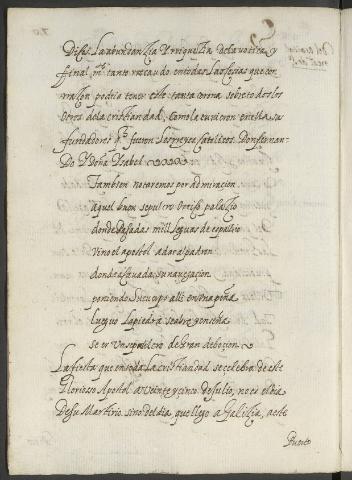 Dicho la abundançia y rriqueza de la botica, y
final.te tanto recaudo en todas las cosas que con
rraçon podria tener esto tanta corona sobre todos los
otros de la cristiandad, como la tuvieron en ella sus
fundadores q fueron los rreyes catolicos Don fernan-
Do y Doña ysabel
Tambien notaremos por admiraçion
aquel buen sepulcro
donde pasadas mill leguas de espaçio
vino el apostol a dar a padron
donde acavada su navegaçion
poniendo su cuerpo alli en una peña
luego la piedra se abre y enseña
ser un sepulcro de gran deboçion
La fiesta que en toda la cristiandad se çelebra de este
glorioso Apostol a veinte y cinco de Julio, no es el dia
de su Martirio. sino del dia, que llego a Galiçia, a este
Puerto